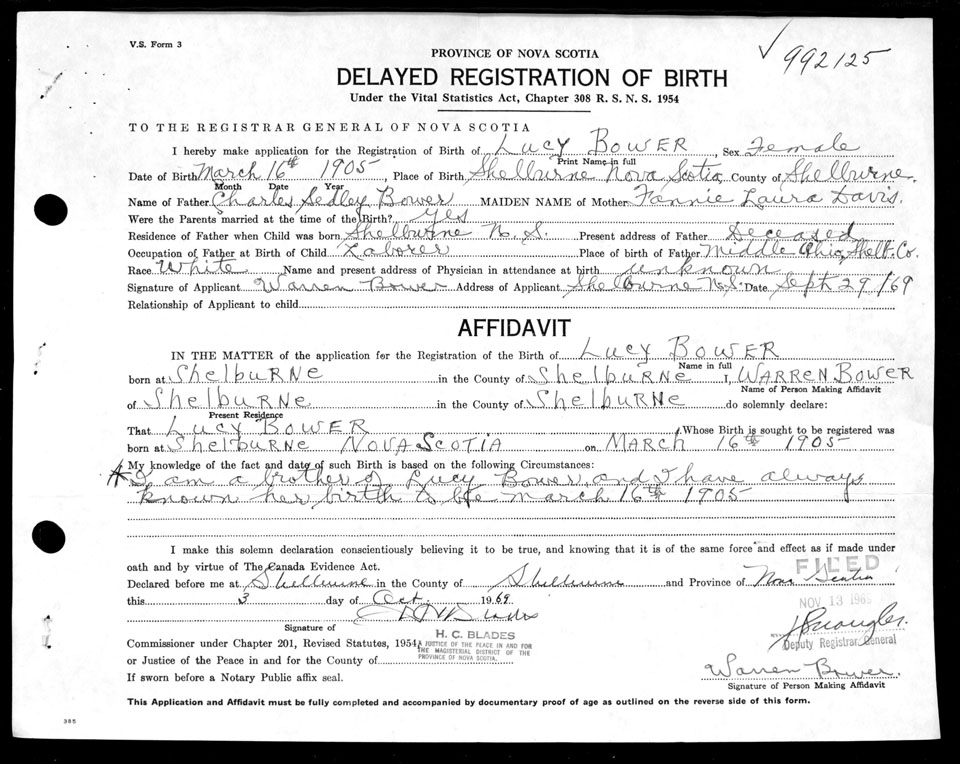 V.S. Form 3
992125
PROVINCE OF NOVA SCOTIA
DELAYED REGISTRATION OF BIRTH
Under the Vital Statistics Act, Chapter 308 R. S. N. S. 1954
TO THE REGISTRAR GENERAL OF NOVA SCOTIA
I hereby make application for the Registration of Birth of LUCY BOWER, Sex Female
Print Name in full
Date of Birth March 16th 1905, Place of Birth Shelburne Nova Scotia, County of Shelburne.
Month Date Year
Name of Father Charles Sedley Bower MAIDEN NAME of Mother Fannie Laura Davis.
Were the Parents married at the time of the Birth? Yes
Residence of Father when Child was born Shelburne N. S. Present address of Father Deceased
Occupation of Father at Birth of Child Laborer Place of birth of Father Middle Ohio, Shelb. Co.
Race White Name and present address of Physician in attendance at birth unknown
Signature of Applicant Warren Bower Address of Applicant Shelburne N.S. Date Sept 29/69
Relationship of Applicant to child
AFFIDAVIT
IN THE MATTER of the application for the Registration of the Birth of LUCY BOWER
Name in full
born at ShelbuRNe in the County of ShelbuRNe I, WARREN BOWER
Name of Person Making Affidavit
of ShelbuRNe in the County of ShelbuRNe do solemnly declare:
Present Residence
That LUCY BOWER, Whose Birth is sought to be registered was
born at ShelbuRNe NOVA SCOTIA on MARCH 16th 1905
My knowledge of the fact and date of such Birth is based on the following Circumstances:
I am a brother of Lucy Bower, and I have always
known her birth to be march 16th 1905
I make this solemn declaration conscientiously believing it to be true, and knowing that it is of the same force and effect as if made under
oath and by virtue of The Canada Evidence Act.
FILED
Declared before me at Shelburne in the County of Shelburne and Province of Nova Scotia
this 3 day of Oct. 1969
NOV 13 1969
H C Blades
Signature of
H. C. BLADES
Commissioner under Chapter 201, Revised Statutes, 1954,
A JUSTICE OF THE PEACE IN AND FOR
THE MAGISTERIAL DISTRICT OF THE
PROVINCE OF NOVA SCOTIA.
Deputy Registrar General
or Justice of the Peace in and for the County of
Warren Bower.
If sworn before a Notary Public affix seal.
Signature of Person Making Affidavit
This Application and Affidavit must be fully completed and accompanied by documentary proof of age as outlined on the reverse side of this form.
385